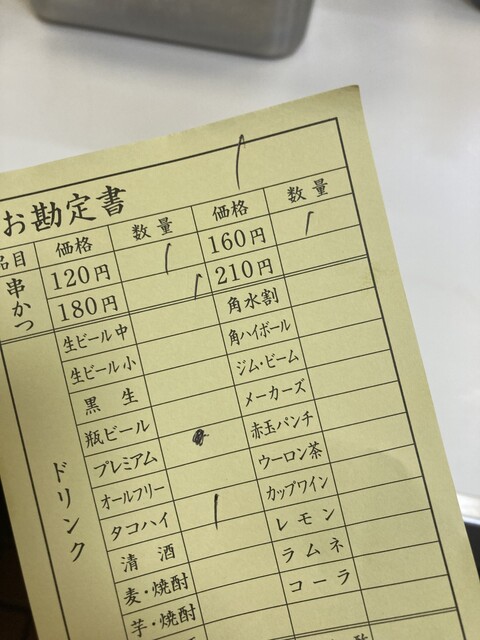 お勘定書
品目 価格 数量 価格 数量
串かつ 120円 160円
180円 210円
ドリンク
生ビール中 角水割
生ビール小 角ハイボール
黒生 ジム・ビーム
瓶ビール メーカーズ
プレミアム 赤玉パンチ
オールフリー ウーロン茶
タコハイ カップワイン
清酒 レモン
麦・焼酎 ラムネ
芋・焼酎 コーラ